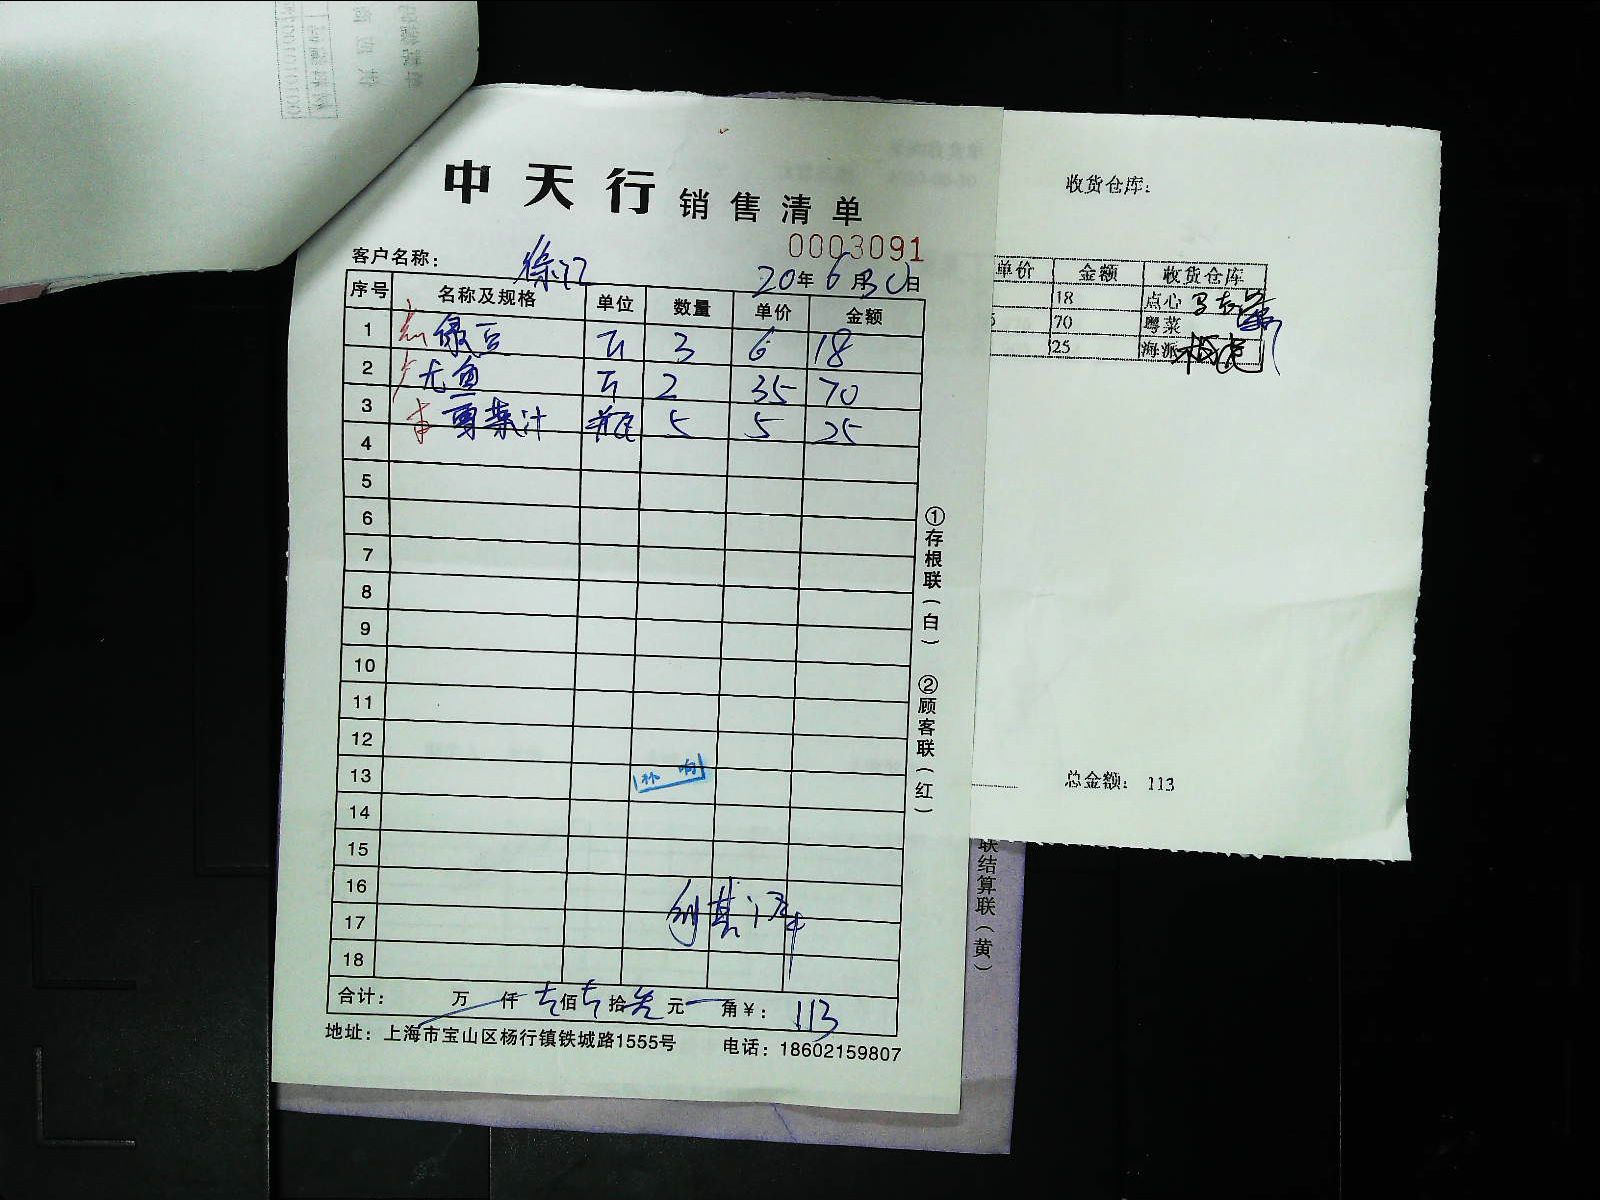 中天行 销售清单
0003091
客户名称： 徐汇
20年6月30日
序号 名称及规格 单位 数量 单价 金额
1 绿豆 斤 3 6 18
2 尤鱼 斤 2 35 70
3 菜汁 瓶 5 5 25
4
5
6
7
8
9
10
11
12
13
14
15
16
17
18
合计： 万 仟 壹佰壹拾叁元 角￥： 113
地址：上海市宝山区杨行镇铁城路1555号 电话：18602159807
①存根联（白） ②顾客联（红）
联结算联（黄）
收货仓库：
单价 金额 收货仓库
18 点心
70 粤菜
25 海派
总金额： 113